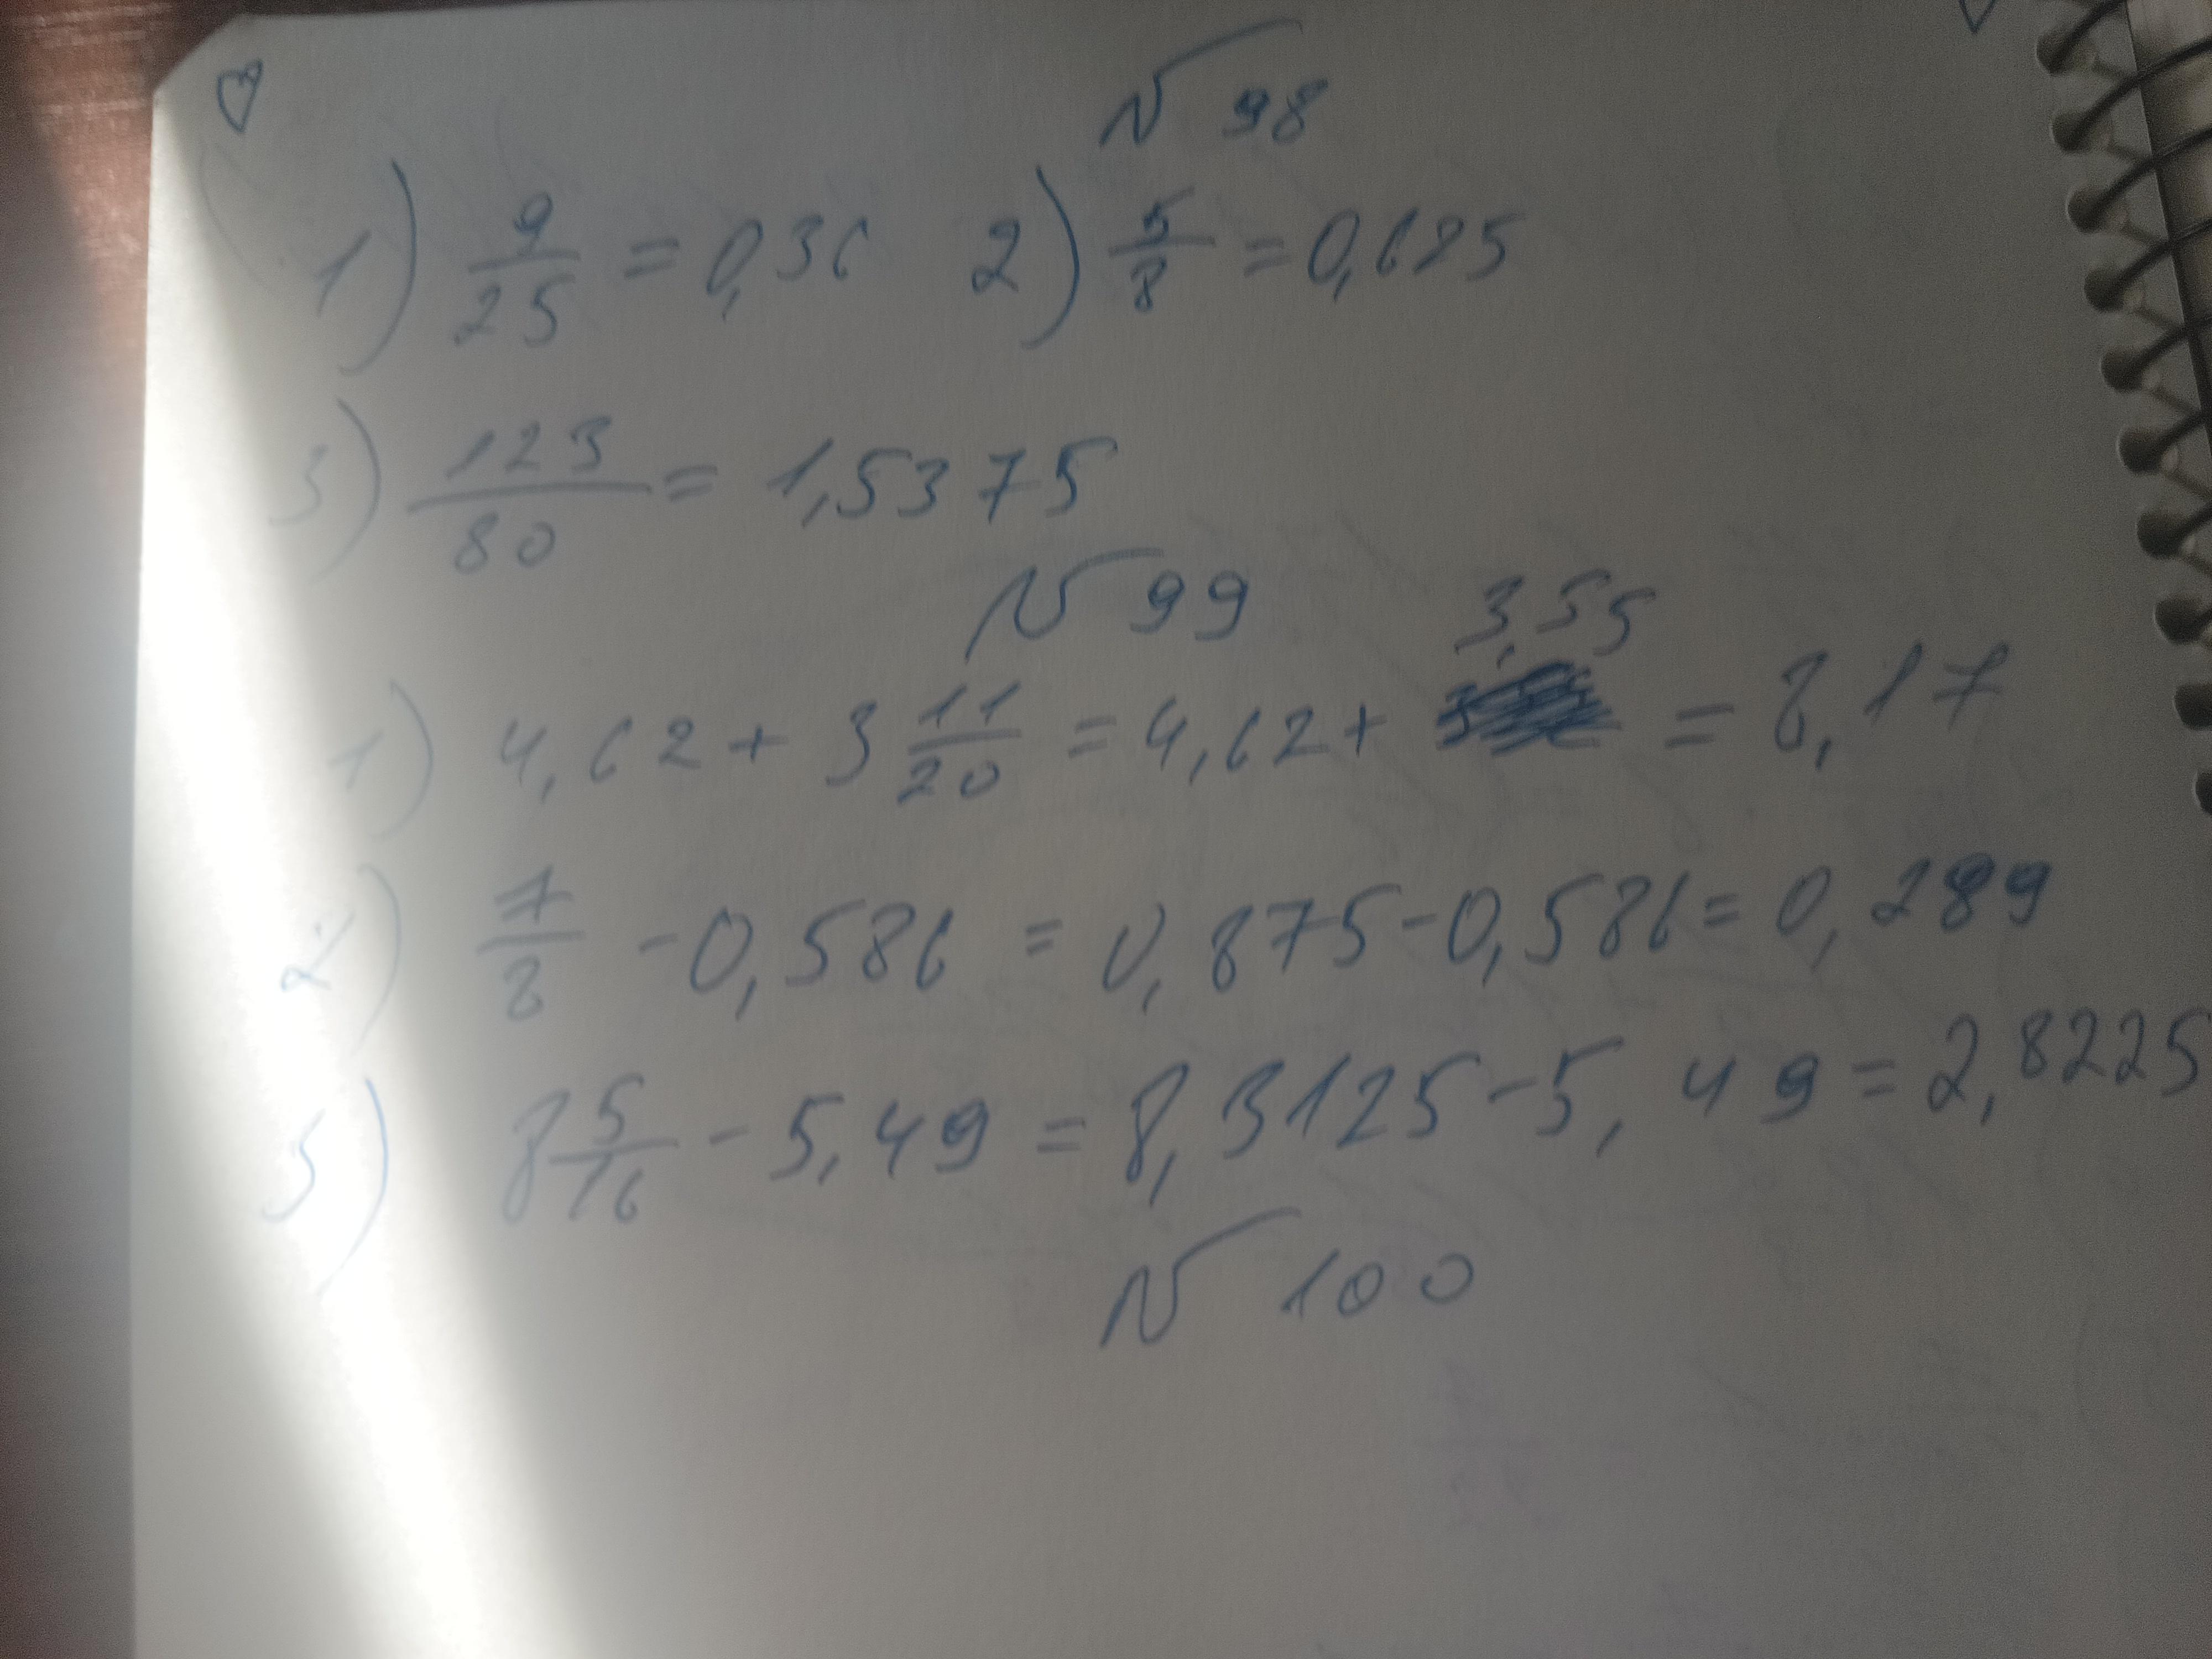 № 98
1) 9/25 = 0,36 2) 5/8 = 0,625
3) 123/80 = 1,5375
№ 99
3,55
1) 4,62 + 3 11/20 = 4,62 + = 8,17
2) 7/8 - 0,586 = 0,875 - 0,586 = 0,289
3) 8 5/16 - 5,49 = 8,3125 - 5,49 = 2,8225
№ 100